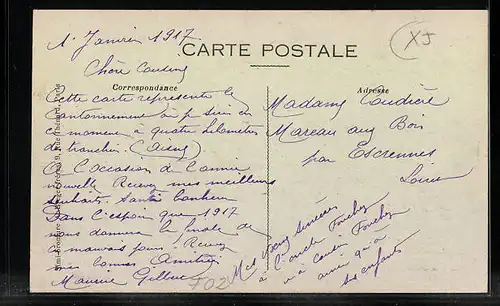 1er Janvier 1917
CARTE POSTALE
Chère Cousine
Correspondance
Cette carte représente le
Cantonnement où je suis en
ce moment à quatre kilomètres
des tranchées. (Aisne)
A l'occasion de l'année
nouvelle Recevez mes meilleurs
souhaits. Santé bonheur
Dans l'espoir que 1917
nous donnera la finale de
ce mauvais jours. Recevez
mes bonnes Amitiés
Maurice
Adresse
Madame Coudière
Mareau aux Bois
par Escrennes
Loiret
Mes vœux sincères
à l'oncle
et à cousin
ainsi qu'à
ses enfants
XJ
F02